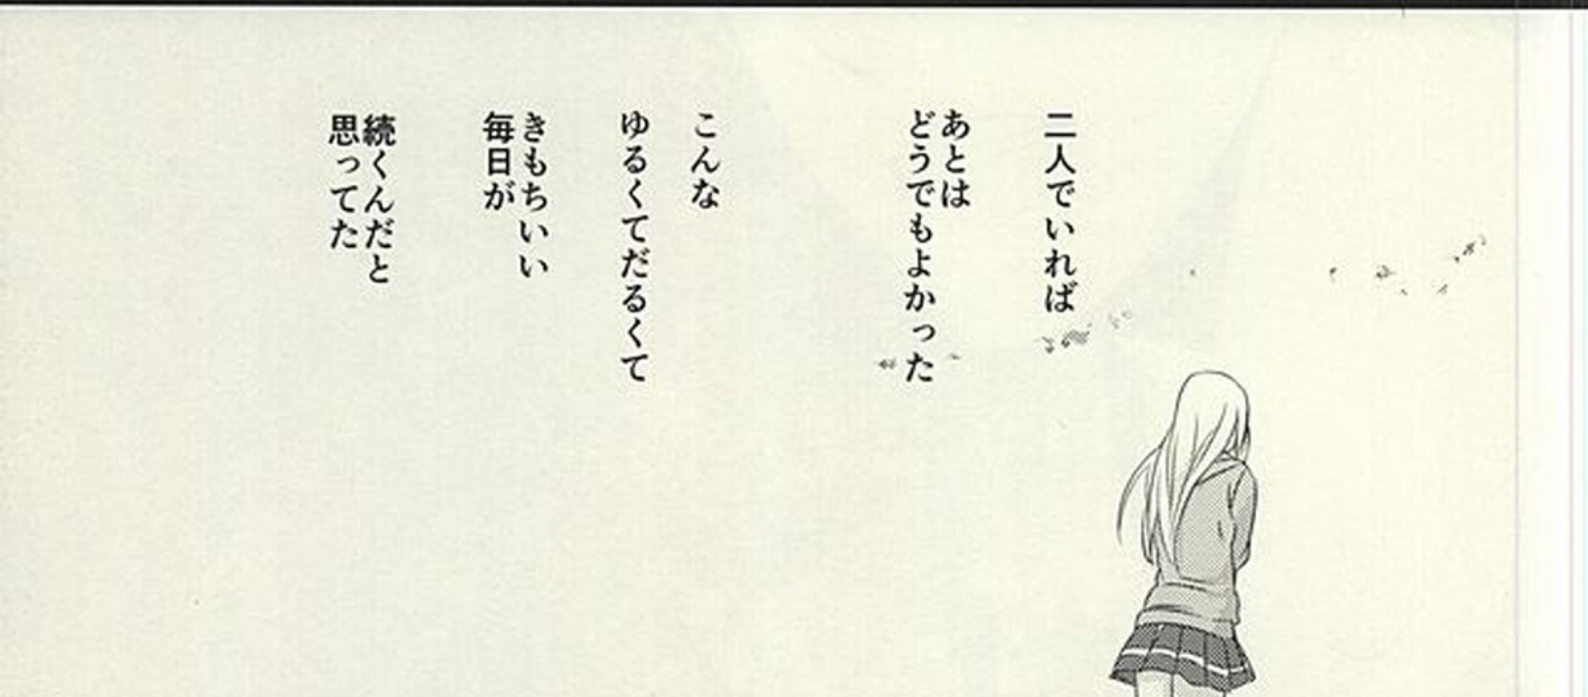 二人でいれば
あとは
どうでもよかった
こんな
ゆるくてだるくて
きもちいい
毎日が
続くんだと
思ってた